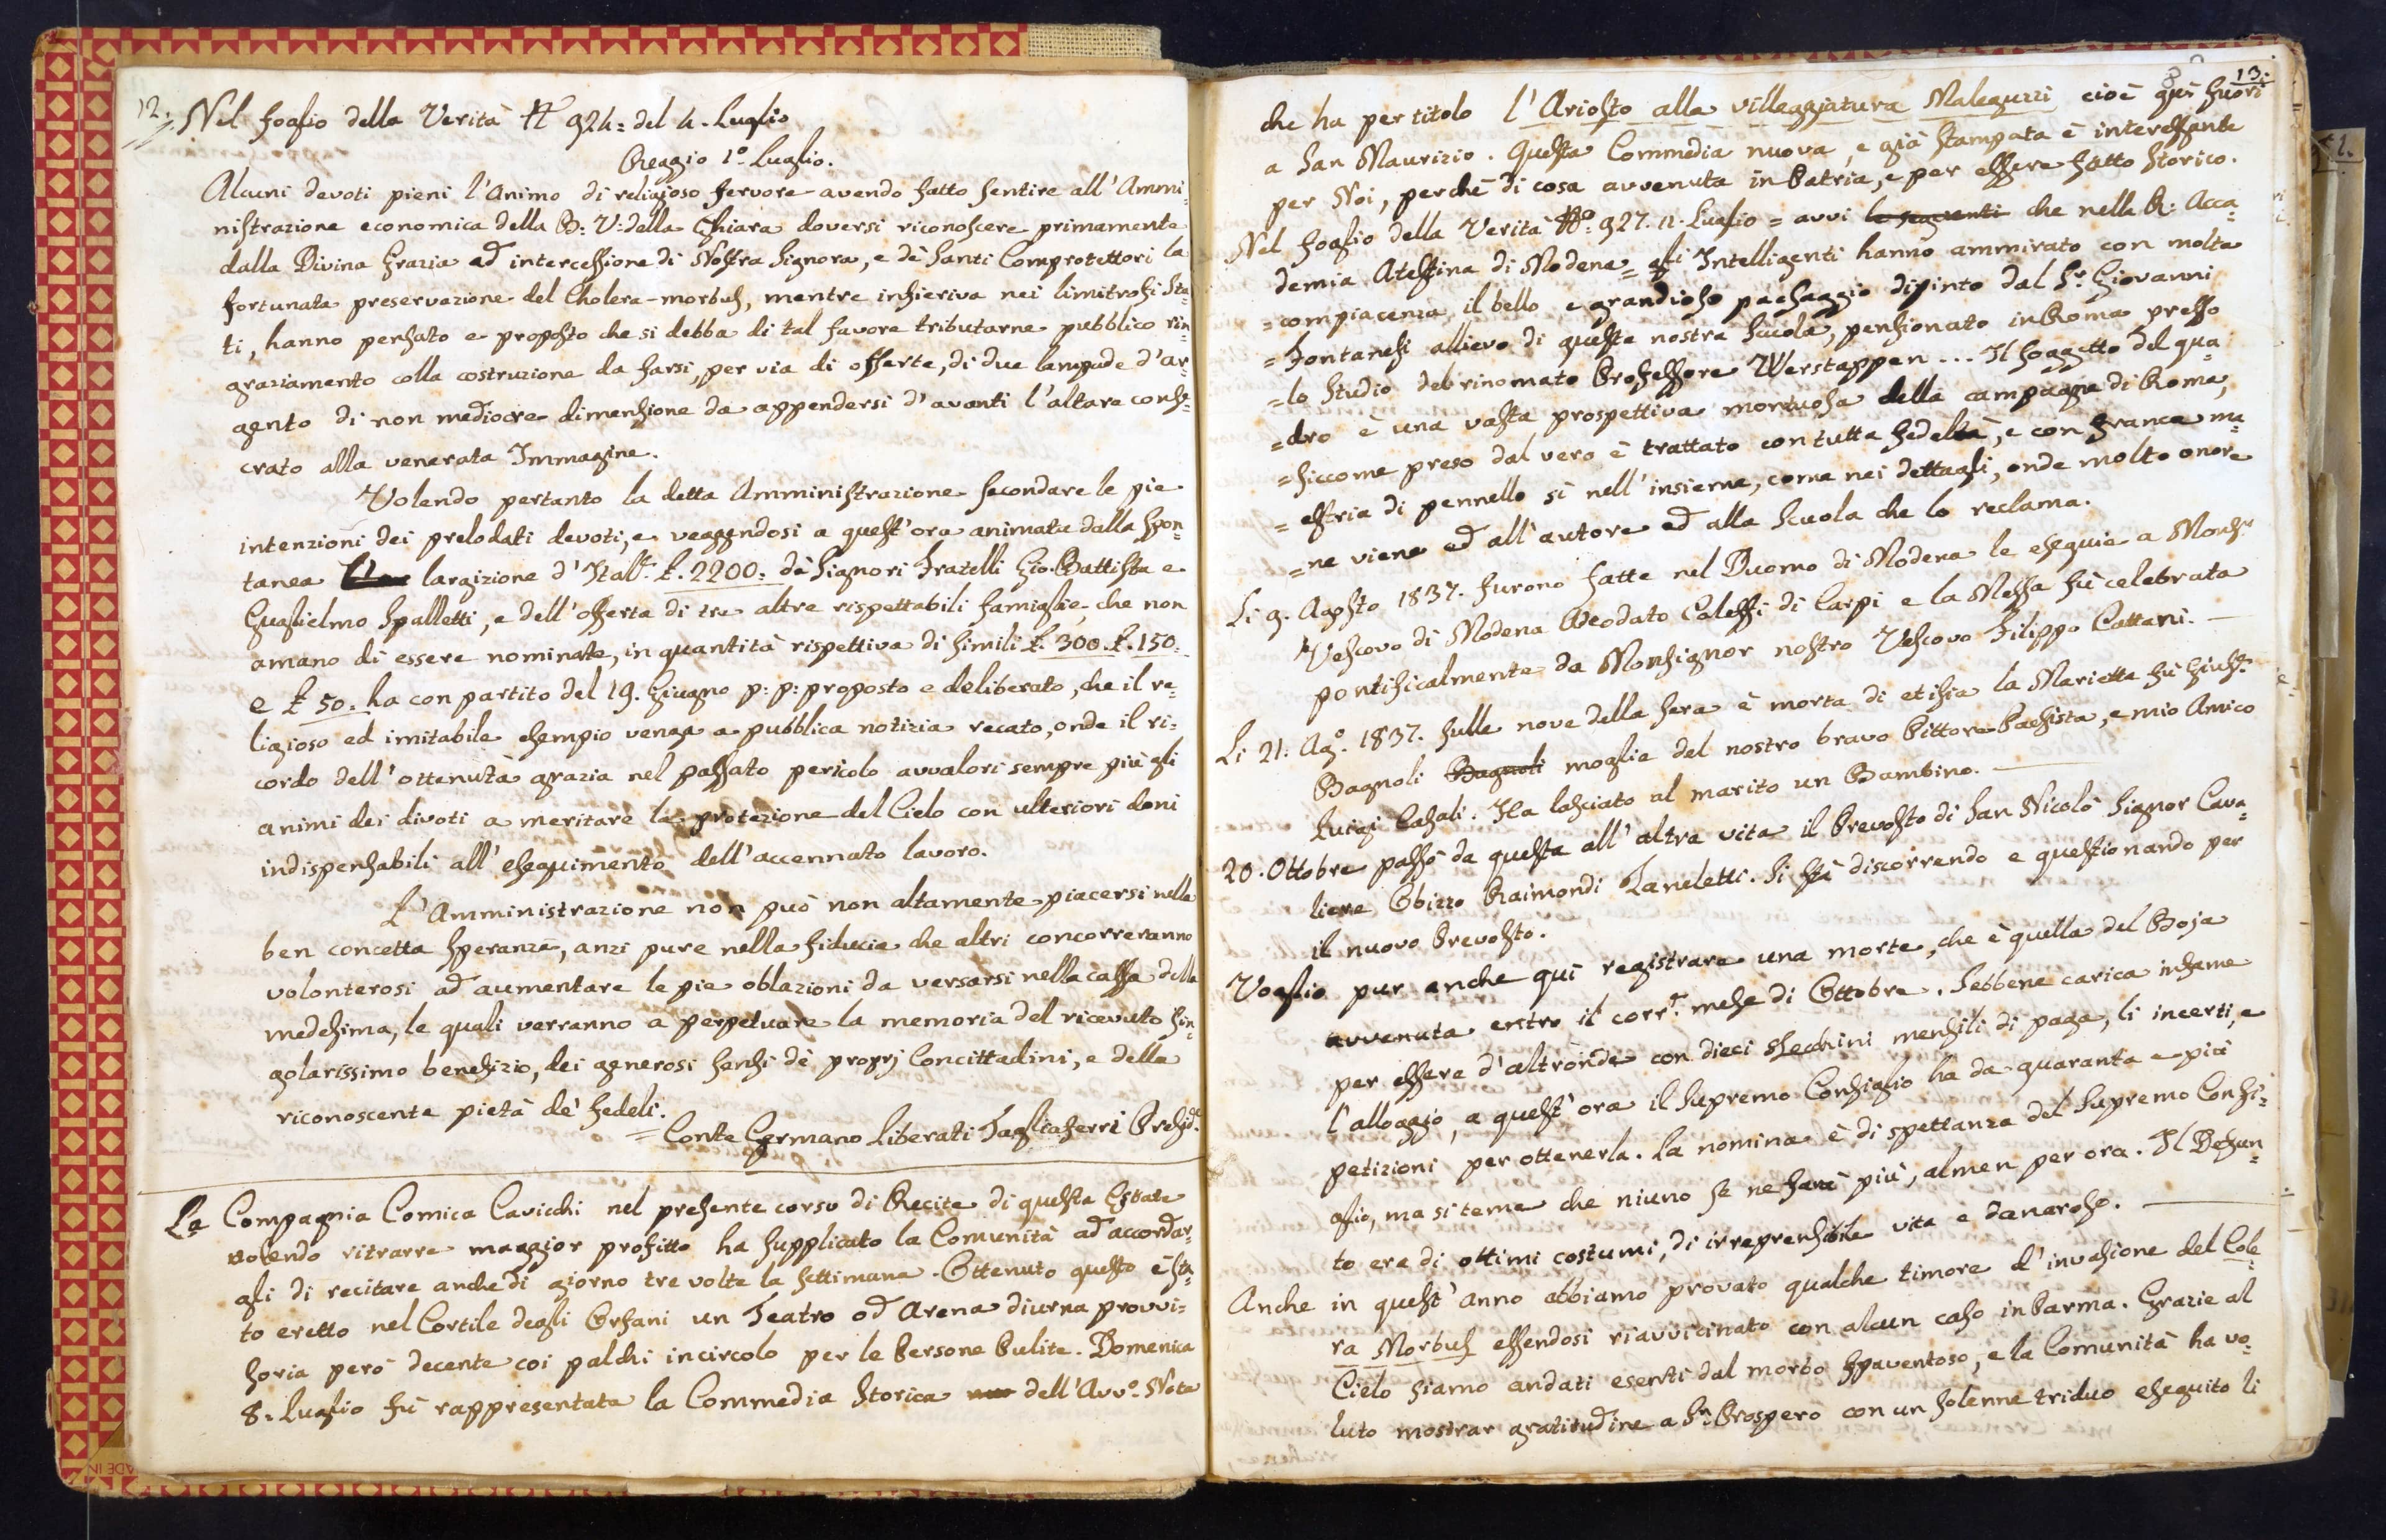 12.
Nel foglio della Verità N 924 = del 4. Luglio
Reggio 1º Luglio.
Alcuni devoti pieni l'animo di religioso fervore avendo fatto sentire all'Ammi=
nistrazione economica della B: V: della Ghiara doversi riconoscere primamente
dalla Divina Grazia ed intercessione di Nostra Signora, e dè Santi Comprotettori la
fortunata preservazione del Cholera-morbus, mentre infieriva nei limitrofi Sta=
ti, hanno pensato e proposto che si debba di tal favore tributarne pubblico rin=
graziamento colla costruzione da farsi, per via di offerte, di due lampade d'ar=
gento di non mediocre dimensione da appendersi d'avanti l'altare consa=
crato alla venerata Immagine.
Volendo pertanto la detta Amministrazione secondare le pie
intenzioni dei prelodati devoti, e veggendosi a quest'ora animata dalla spon=
tanea largizione d'Ital.e £. 2200: dè Signori Fratelli Gio. Battista e
Guglielmo Spalletti, e dell'offerta di tre altre rispettabili famiglie, che non
amano di essere nominate, in quantità rispettiva di simili £. 300. £. 150.
e £ 50. ha con partito del 19. Giugno p: p: proposto e deliberato, che il re=
ligioso ed imitabile esempio venga a pubblica notizia recato, onde il ri=
cordo dell'ottenuta grazia nel passato pericolo avvalori sempre più gli
animi dei divoti a meritare la protezione del Cielo con ulteriori doni
indispensabili all'eseguimento dell'accennato lavoro.
L'Amministrazione non può non altamente piacersi nella
ben concetta speranza, anzi pure nella fiducia che altri concorreranno
volonterosi ad aumentare le pie oblazioni da versarsi nella cassa della
medesima, le quali verranno a perpetuare la memoria del ricevuto sin=
golarissimo benefizio, dei generosi sensi dè proprj Concittadini, e della
riconoscente pietà de' fedeli.
= Conte Germano Liberati Tagliaferri Presid.e
La Compagnia Comica Cavicchi nel presente corso di Recite di questa Estate
volendo ritrarre maggior profitto ha supplicato la Comunità ad accordar=
gli di recitare anche di giorno tre volte la settimana. Ottenuto questo è sta=
to eretto nel Cortile degli Orfani un Teatro od Arena diurna provvi=
soria però decente coi palchi in circolo per le Persone Pulite. Domenica
8. Luglio fù rappresentata la Commedia Storica dell'Avv.º Nota
13.
che ha per titolo l'Ariosto alla villeggiatura Maleguzzi cioè quì fuori
a San Maurizio. Questa Commedia nuova, e già stampata è interessante
per Noi, perchè di cosa avvenuta in Patria, e per essere fatto storico.
Nel foglio della Verità Nº: 927. 11. Luglio = avvi le seguenti che nella R: Acca=
demia Atestina di Modena = gli Intelligenti hanno ammirato con molta
= compiacenza il bello e grandioso paesaggio dipinto dal S.r Giovanni
= Fontanesi allievo di questa nostra Scuola, pensionato in Roma presso
= lo Studio del rinomato Professore Werstappen ... Il soggetto del qua=
= dro è una vasta prospettiva montuosa della campagna di Roma,
= siccome preso dal vero è trattato con tutta fedeltà, e con franca ma=
= estria di pennello sì nell'insieme, come nei dettagli, onde molto onore
= ne viene ed all'autore ed alla Scuola che lo reclama.
Li 9. Agosto 1837. furono fatte nel Duomo di Modena le esequie a Mons.r
Vescovo di Modena Adeodato Caleffi di Carpi e la Messa fù celebrata
pontificalmente da Monsignor nostro Vescovo Filippo Cattani.
Li 21. Ag.º 1837. sulle nove della sera è morta di etisia la Marietta fù Gius.e
Bagnoli Bagnoli moglie del nostro bravo Pittore Paesista, e mio Amico
Luigi Casali. Ha lasciato al marito un Bambino.
20. Ottobre passò da questa all'altra vita il Prevosto di San Nicolò Signor Cava=
liere Obizzo Raimondi Taneletti. Si stà discorrendo e questionando per
il nuovo Prevosto.
Voglio pur anche quì registrare una morte, che è quella del Boja
avvenuta entro il corr.e mese di Ottobre. Sebbene carica infame
per essere d'altronde con dieci zecchini mensili di paga, li incerti, e
l'alloggio, a quest'ora il Supremo Consiglio ha da quaranta e più
petizioni per ottenerla. La nomina è di spettanza del Supremo Consi=
glio, ma si teme che niuno se ne farà più, almen per ora. Il Defun=
to era di ottimi costumi, di irreprensibile vita e danaroso.
Anche in quest'anno abbiamo provato qualche timore d'invasione del Cole=
ra Morbus essendosi riavvicinato con alcun caso in Parma. Grazie al
Cielo siamo andati esenti dal morbo spaventoso, e la Comunità ha vo=
luto mostrar gratitudine a S.n Prospero con un solenne triduo eseguito li